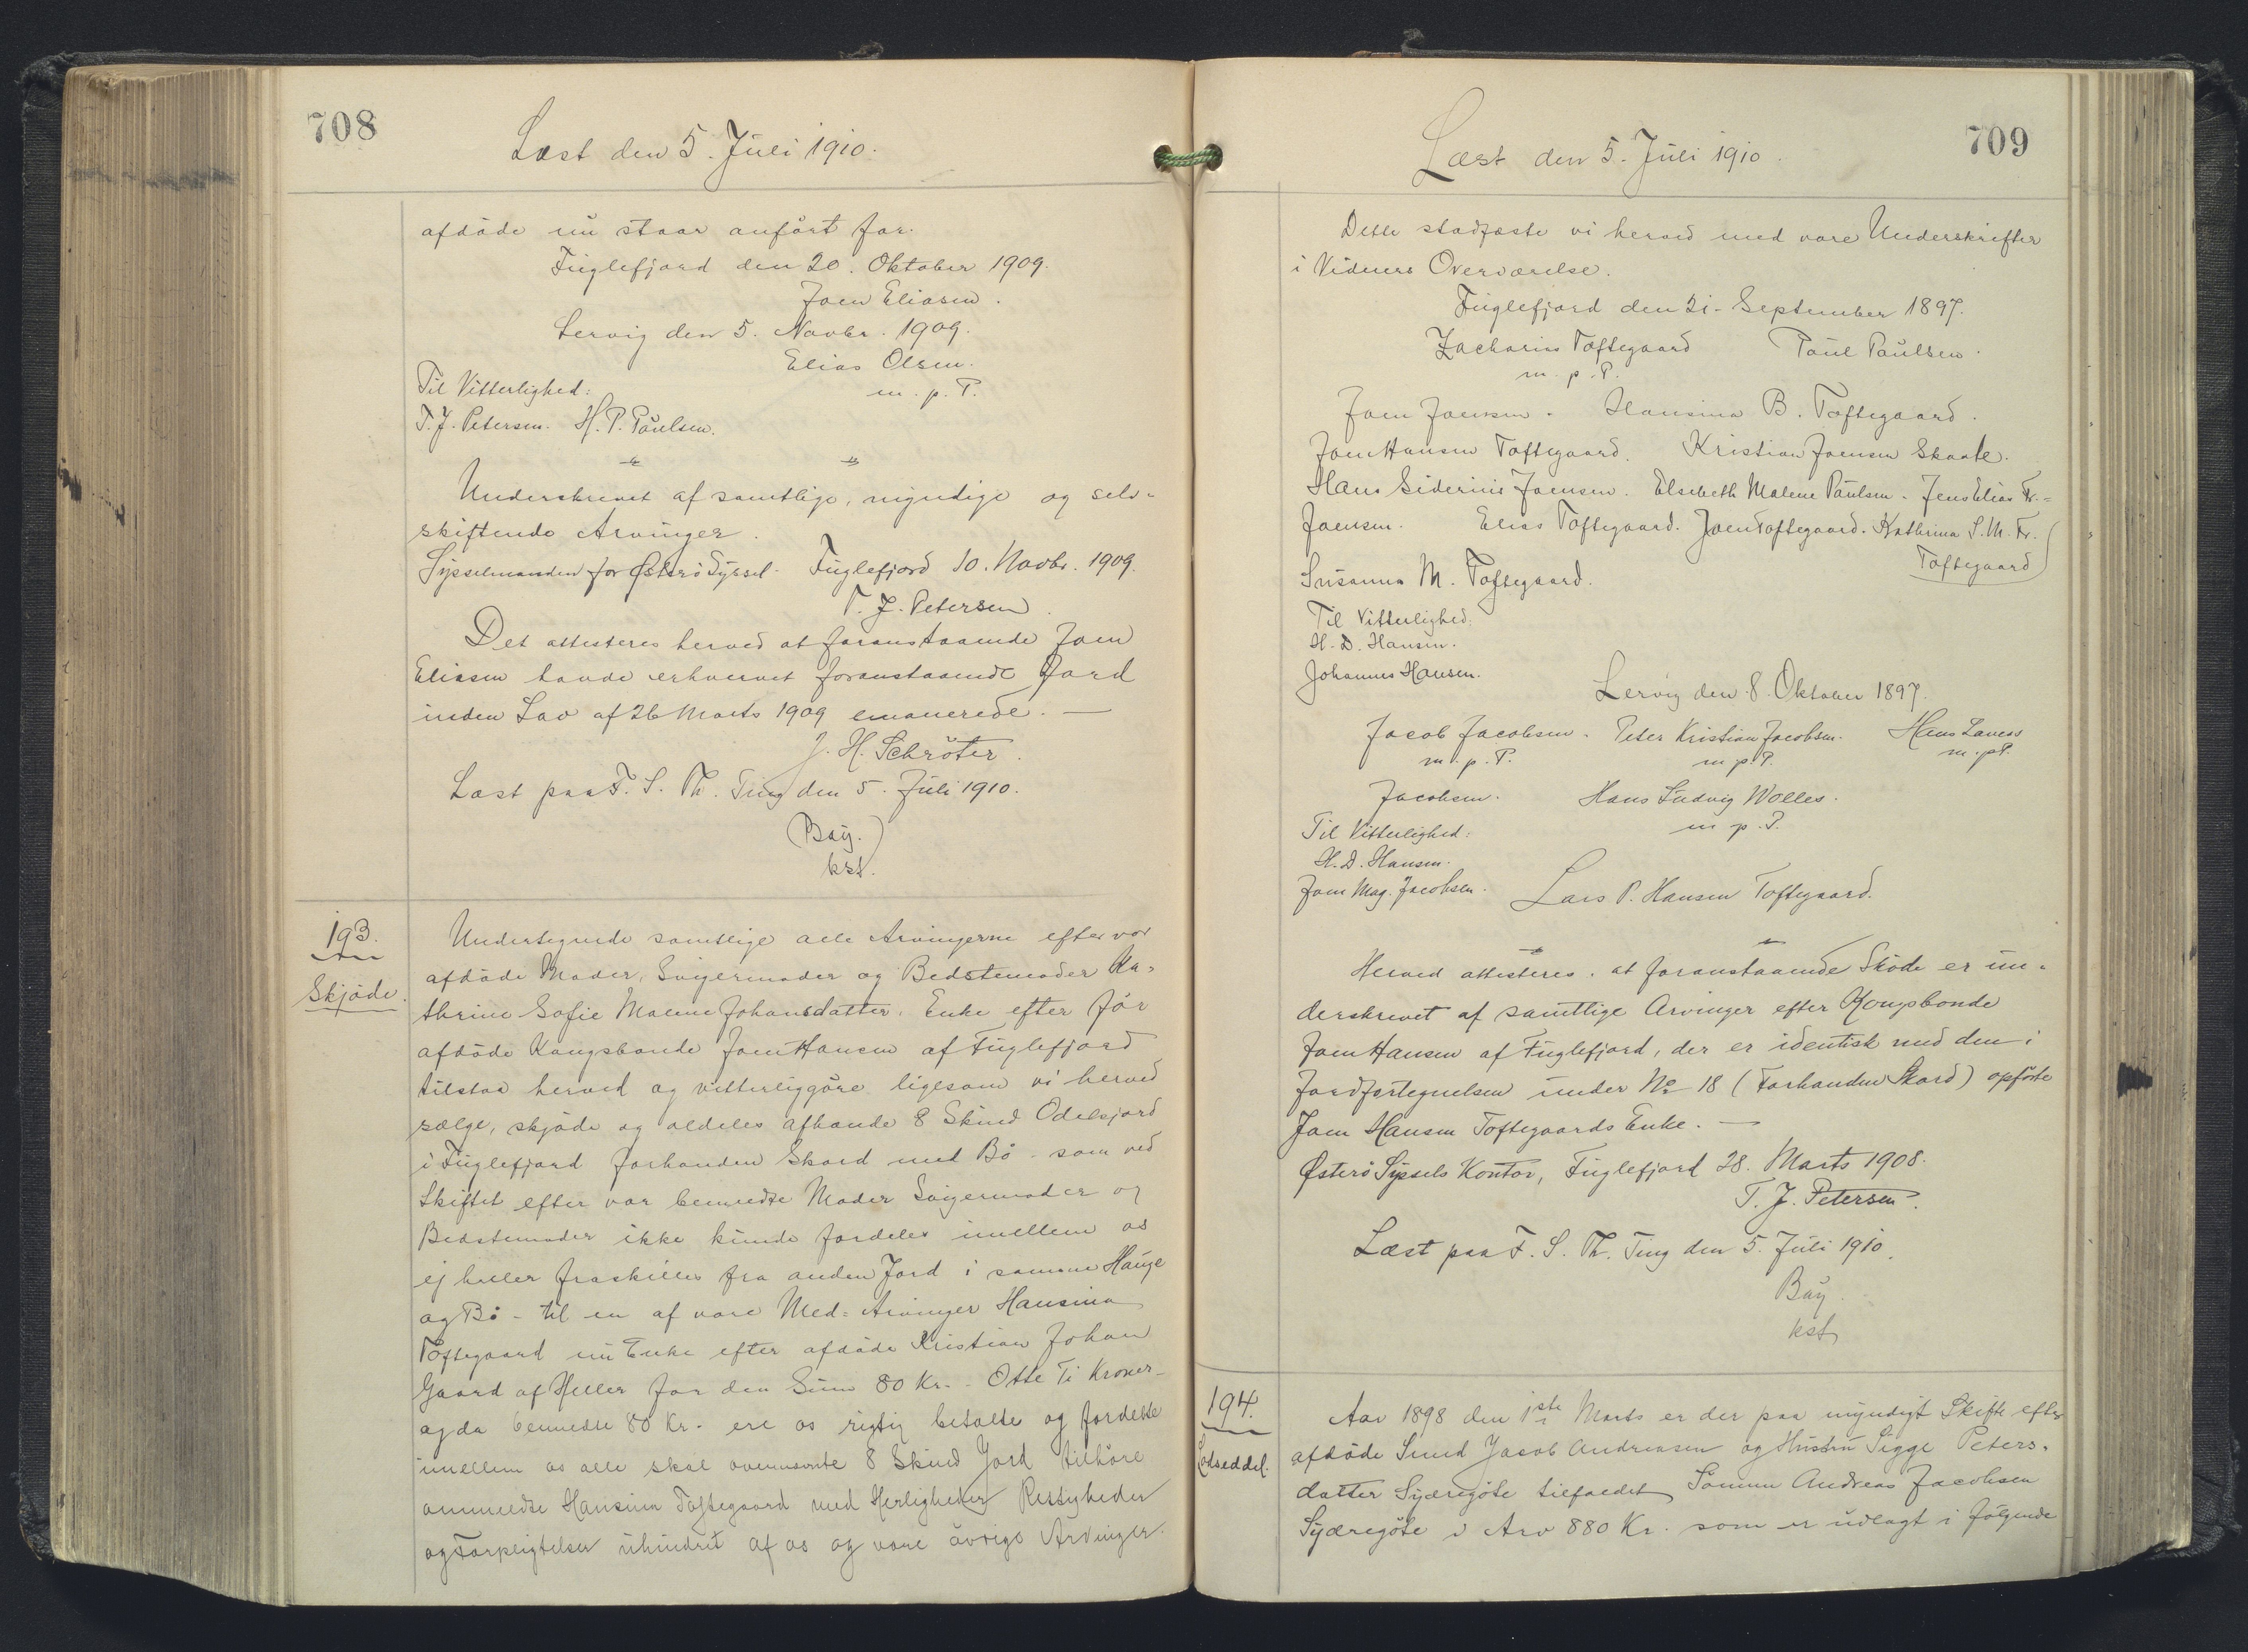 708
Læst den 5. Juli 1910.
afdöde nu staar anfört for.
Fuglefjord den 20. Oktober 1909.
Joen Eliasen.
Lervig den 5. Novbr. 1909.
Elias Olsen.
m. p. P.
Til Vitterlighed:
T. J. Petersen. H. P. Paulsen.
Underskrevet af samtlige, myndige og selv-
skiftende Arvinger.
Sysselmanden for Østerö Syssel. Fuglefjord 10. Novbr. 1909.
T. J. Petersen
Det attesteres herved at foranstaaende Joen
Eliasen havde erhvervet foranstaaende Jord
inden Lov af 26 Marts 1909 emanerede. —
J. H. Schröter.
Læst paa F. S. Th. Ting den 5. Juli 1910.
(Bay.)
kst.
193.
Skjöde.
Undertegnede samtlige alle Arvingerne efter vor
afdöde Moder, Svigermoder og Bedstemoder Ka-
thrine Sofie Malene Johansdatter, Enke efter för
afdöde Kongsbonde Joen Hansen af Fuglefjord
tilstaa herved og vitterliggöre ligesom vi herved
sælge, skjöde og aldeles afhænde 8 Skind Odelsjord
i Fuglefjord forhanden Skard med Bö - som ved
Skiftet efter vor benævnte Moder Svigermoder og
Bedstemoder ikke kunde fordeles imellem os
ej heller fraskilles fra anden Jord i samme Hauge
og Bö - til en af vore Med-Arvinger Hansina
Toftegaard nu Enke efter afdöde Kristian Johan
Gaard af Heller for den Sum 80 Kr. - Otte Ti Kroner -
og da benævnte 80 Kr. ere os rigtig betalte og fordelte
imellem os alle skal ovennævnte 8 Skind Jord tilhöre
ommeldte Hansina Toftegaard med Herligheder Rettigheder
og Forpligtelser uhindret af os og vore övrige Arvinger.
709
Læst den 5. Juli 1910.
Dette stadfæste vi herved med vore Underskrifter
i Vidners Overværelse.
Fuglefjord den 21. September 1897.
Zacharias Toftegaard Poul Paulsen.
m. p. P.
Joen Joensen. Hansina B. Toftegaard.
Joen Hansen Toftegaard. Kristian Joensen Skaale.
Hans Siderius Joensen. Elsebeth Malene Paulsen. Jens Elias Fr.-
Joensen. Elias Toftegaard. Joen Toftegaard. Kathrina S. M. Fr.
Toftegaard
Susanna M. Toftegaard.
Til Vitterlighed:
H. D. Hansen.
Johannes Hansen.
Lervig den 8. Oktober 1897.
Jacob Jacobsen. Peter Kristian Jacobsen. Hans
m. p. P. m. p. P. m. p. P.
Jacobsen. Hans Ludvig Wolles.
m. p. P.
Til Vitterlighed:
H. D. Hansen.
Joen Mag. Jacobsen. Lars P. Hansen Toftegaard.
Herved attesteres, at foranstaaende Sköde er un-
derskrevet af samtlige Arvinger efter Kongsbonde
Joen Hansen af Fuglefjord, der er identisk med den i
Jordfortegnelsen under No 18 (Forhanden Skard) opförte
Joen Hansen Toftegaards Enke. —
Österö Syssels Kontor, Fuglefjord 28. Marts 1908.
T. J. Petersen.
Læst paa F. S. Th. Ting den 5. Juli 1910.
Bay.
kst
194.
Lodseddel.
Aar 1898 den 1ste Marts er der paa myndigt Skifte efter
afdöde Smed Jacob Andreasen og Hustru Sigge Peters-
datter Syderegöte tilfaldet Sönnen Andreas Jacobsen
Syderegöte i Arv 880 Kr. som er udlagt i fölgende